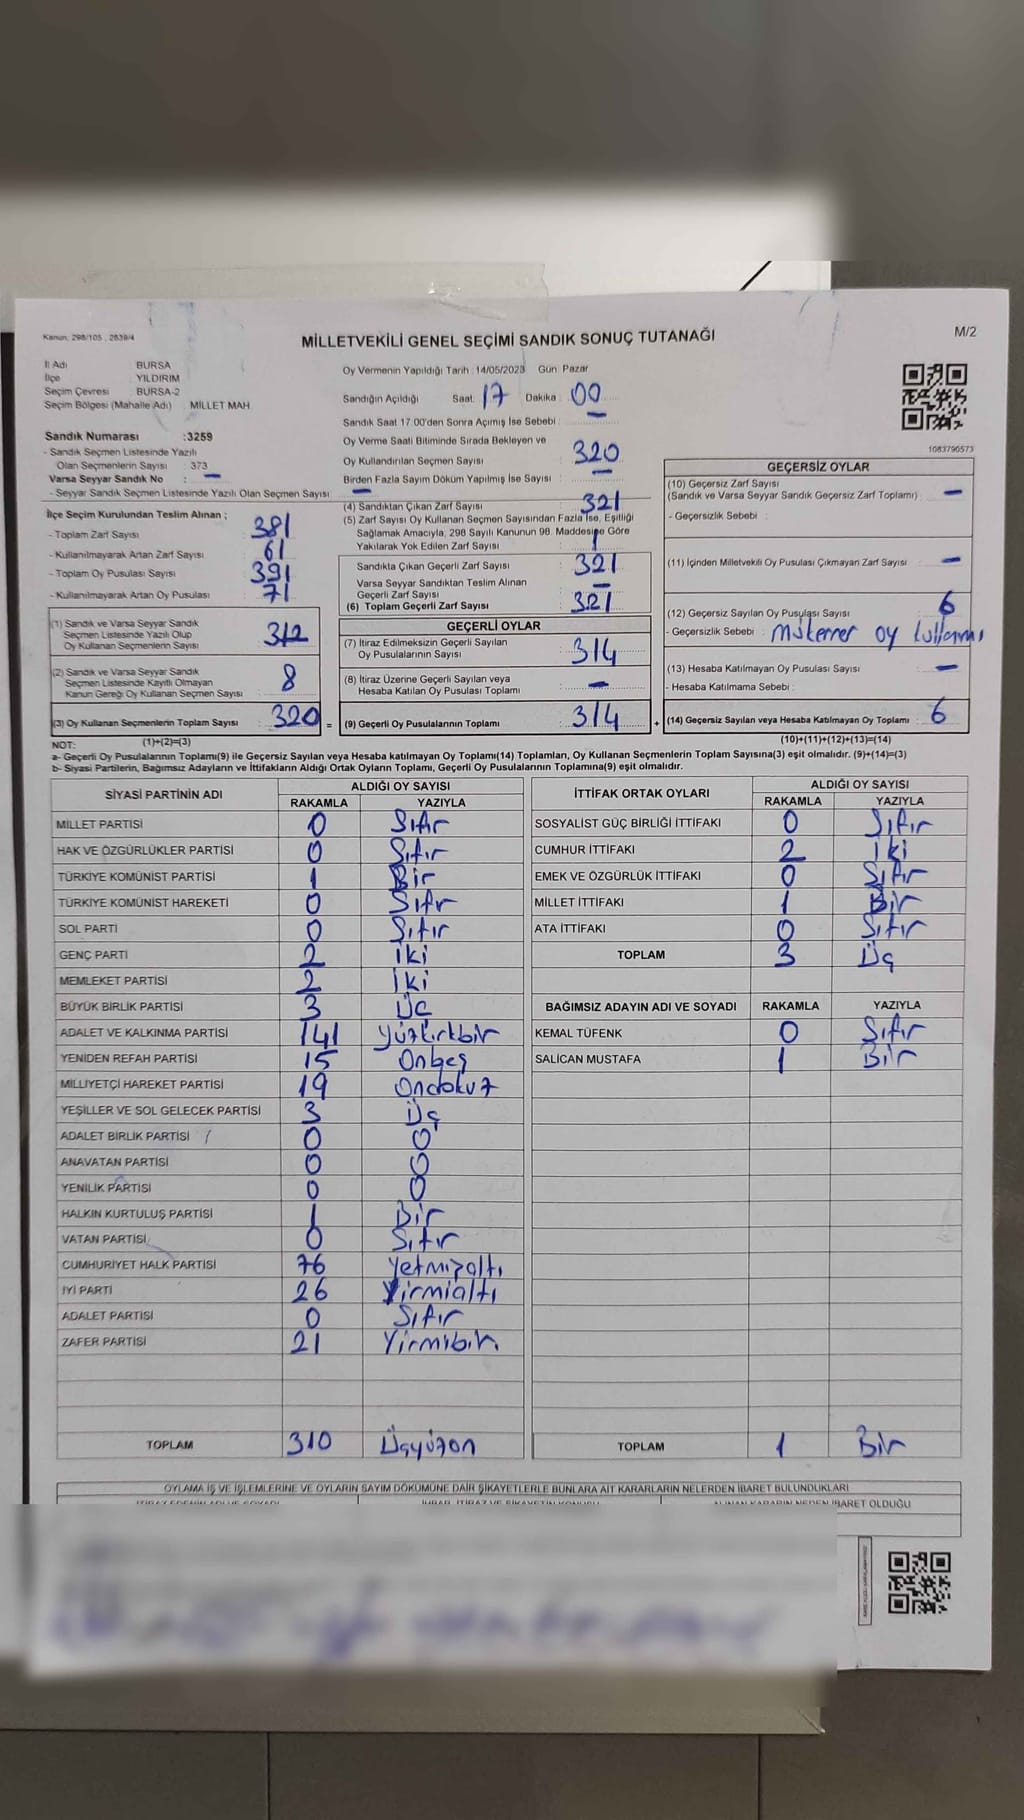 Kanun: 298/105 , 2839/4
MİLLETVEKİLİ GENEL SEÇİMİ SANDIK SONUÇ TUTANAĞI
M/2
İl Adı BURSA
İlçe YILDIRIM
Seçim Çevresi BURSA-2
Seçim Bölgesi (Mahalle Adı) : MİLLET MAH.
Sandık Numarası :3259
- Sandık Seçmen Listesinde Yazılı
Olan Seçmenlerin Sayısı : 373
Varsa Seyyar Sandık No : —
- Seyyar Sandık Seçmen Listesinde Yazılı Olan Seçmen Sayısı : —
İlçe Seçim Kurulundan Teslim Alınan ;
- Toplam Zarf Sayısı 381
- Kullanılmayarak Artan Zarf Sayısı 61
- Toplam Oy Pusulası Sayısı 391
- Kullanılmayarak Artan Oy Pusulası 71
(1) Sandık ve Varsa Seyyar Sandık
Seçmen Listesinde Yazılı Olup
Oy Kullanan Seçmenlerin Sayısı 312
(2) Sandık ve Varsa Seyyar Sandık
Seçmen Listesinde Kayıtlı Olmayan
Kanun Gereği Oy Kullanan Seçmen Sayısı 8
(3) Oy Kullanan Seçmenlerin Toplam Sayısı 320 =
Oy Vermenin Yapıldığı Tarih : 14/05/2023 Gün: Pazar
Sandığın Açıldığı Saat: 17 Dakika : 00
Sandık Saat 17.00'den Sonra Açımış İse Sebebi : —
Oy Verme Saati Bitiminde Sırada Bekleyen ve
Oy Kullandırılan Seçmen Sayısı 320
Birden Fazla Sayım Döküm Yapılmış İse Sayısı : —
(4) Sandıktan Çıkan Zarf Sayısı 321
(5) Zarf Sayısı Oy Kullanan Seçmen Sayısından Fazla İse, Eşitliği
Sağlamak Amacıyla; 298 Sayılı Kanunun 98. Maddesine Göre
Yakılarak Yok Edilen Zarf Sayısı 1
Sandıkta Çıkan Geçerli Zarf Sayısı 321
Varsa Seyyar Sandıktan Teslim Alınan
Geçerli Zarf Sayısı —
(6) Toplam Geçerli Zarf Sayısı 321
GEÇERLİ OYLAR
(7) İtiraz Edilmeksizin Geçerli Sayılan
Oy Pusulalarının Sayısı 314
(8) İtiraz Üzerine Geçerli Sayılan veya
Hesaba Katılan Oy Pusulası Toplamı —
(9) Geçerli Oy Pusulalarının Toplamı 314 +
1083790573
GEÇERSİZ OYLAR
(10) Geçersiz Zarf Sayısı
(Sandık ve Varsa Seyyar Sandık Geçersiz Zarf Toplamı) : —
- Geçersizlik Sebebi :
(11) İçinden Milletvekili Oy Pusulası Çıkmayan Zarf Sayısı : —
(12) Geçersiz Sayılan Oy Pusulası Sayısı 6
- Geçersizlik Sebebi : mükerrer oy kullanımı
(13) Hesaba Katılmayan Oy Pusulası Sayısı : —
- Hesaba Katılmama Sebebi :
(14) Geçersiz Sayılan veya Hesaba Katılmayan Oy Toplamı : 6
NOT: (1)+(2)=(3) (10)+(11)+(12)+(13)=(14)
a- Geçerli Oy Pusulalarının Toplamı(9) ile Geçersiz Sayılan veya Hesaba katılmayan Oy Toplamı(14) Toplamları, Oy Kullanan Seçmenlerin Toplam Sayısına(3) eşit olmalıdır. (9)+(14)=(3)
b- Siyasi Partilerin, Bağımsız Adayların ve İttifakların Aldığı Ortak Oyların Toplamı, Geçerli Oy Pusulalarının Toplamına(9) eşit olmalıdır.
SİYASİ PARTİNİN ADI ALDIĞI OY SAYISI
RAKAMLA YAZIYLA
MİLLET PARTİSİ 0 Sıfır
HAK VE ÖZGÜRLÜKLER PARTİSİ 0 Sıfır
TÜRKİYE KOMÜNİST PARTİSİ 1 Bir
TÜRKİYE KOMÜNİST HAREKETİ 0 Sıfır
SOL PARTİ 0 Sıfır
GENÇ PARTİ 2 İki
MEMLEKET PARTİSİ 2 İki
BÜYÜK BİRLİK PARTİSİ 3 Üç
ADALET VE KALKINMA PARTİSİ 141 Yüzkırkbir
YENİDEN REFAH PARTİSİ 15 Onbeş
MİLLİYETÇİ HAREKET PARTİSİ 19 Ondokuz
YEŞİLLER VE SOL GELECEK PARTİSİ 3 Üç
ADALET BİRLİK PARTİSİ 0 0
ANAVATAN PARTİSİ 0 0
YENİLİK PARTİSİ 0 0
HALKIN KURTULUŞ PARTİSİ 1 Bir
VATAN PARTİSİ 0 Sıfır
CUMHURİYET HALK PARTİSİ 76 Yetmişaltı
İYİ PARTİ 26 Yirmialtı
ADALET PARTİSİ 0 Sıfır
ZAFER PARTİSİ 21 Yirmibir
TOPLAM 310 Üçyüzon
İTTİFAK ORTAK OYLARI ALDIĞI OY SAYISI
RAKAMLA YAZIYLA
SOSYALİST GÜÇ BİRLİĞİ İTTİFAKI 0 Sıfır
CUMHUR İTTİFAKI 2 İki
EMEK VE ÖZGÜRLÜK İTTİFAKI 0 Sıfır
MİLLET İTTİFAKI 1 Bir
ATA İTTİFAKI 0 Sıfır
TOPLAM 3 Üç
BAĞIMSIZ ADAYIN ADI VE SOYADI RAKAMLA YAZIYLA
KEMAL TÜFENK 0 Sıfır
SALİCAN MUSTAFA 1 Bir
TOPLAM 1 Bir
OYLAMA İŞ VE İŞLEMLERİNE VE OYLARIN SAYIM DÖKÜMÜNE DAİR ŞİKAYETLERLE BUNLARA AİT KARARLARIN NELERDEN İBARET BULUNDUKLARI
İTİRAZ EDENİN ADI VE SOYADI İHBAR, İTİRAZ VE ŞİKAYETİN KONUSU ALINAN KARARIN NEDEN İBARET OLDUĞU